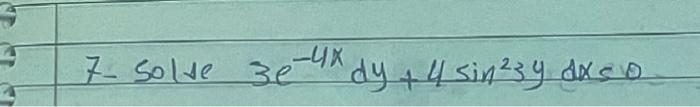 7- Solve 3e⁻⁴ˣ dy + 4 sin²3y dx = 0